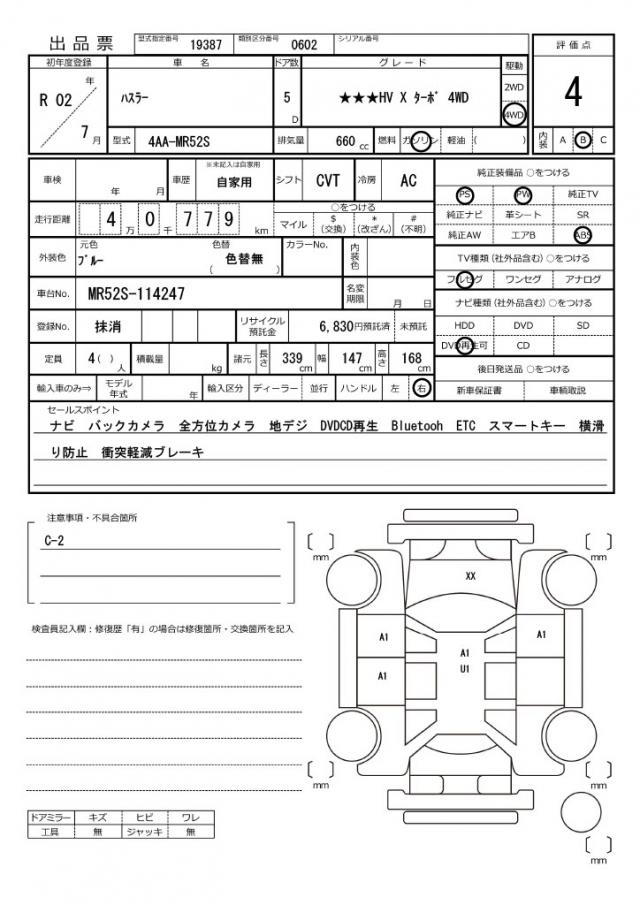 出品票 型式指定番号 19387 類別区分番号 0602 シリアル番号
評価点
初年度登録 車名 ドア数 グレード 駆動
R 02 年 7月 ハスラー 5 D ★★★HV X ターボ 4WD 2WD 4WD
4
型式 4AA-MR52S 排気量 660 cc 燃料 ガソリン 軽油 ( )
内装 A B C
車検 年 月 車歴 ※未記入は自家用 自家用 シフト CVT 冷房 AC
純正装備品 ○をつける
PS PW 純正TV
純正ナビ 革シート SR
純正AW エアB ABS
走行距離 4万 0千 7 7 9 km ○をつける マイル $(交換) *(改ざん) #(不明)
外装色 元色 ブルー 色替 ( 色替無 ) カラーNo. 内装色
TV種類 (社外品含む) ○をつける
フルセグ ワンセグ アナログ
車台No. MR52S-114247 名変期限 月 日
ナビ種類 (社外品含む) ○をつける
HDD DVD SD
DVD再生可 CD
登録No. 抹消 リサイクル預託金 6,830円預託済 未預託
定員 4( )人 積載量 kg 諸元 長さ 339 cm 幅 147 cm 高さ 168 cm
後日発送品 ○をつける
新車保証書 車輌取説
輸入車のみ⇒ モデル年式 年 輸入区分 ディーラー 並行 ハンドル 左 右
セールスポイント
ナビ バックカメラ 全方位カメラ 地デジ DVDCD再生 Bluetooh ETC スマートキー 横滑
り防止 衝突軽減ブレーキ
注意事項・不具合箇所
C-2
検査員記入欄：修復歴「有」の場合は修復箇所・交換箇所を記入
mm
mm
XX
A1
A1
A1
U1
A1
mm
mm
mm
ドアミラー キズ ヒビ ワレ
工具 無 ジャッキ 無